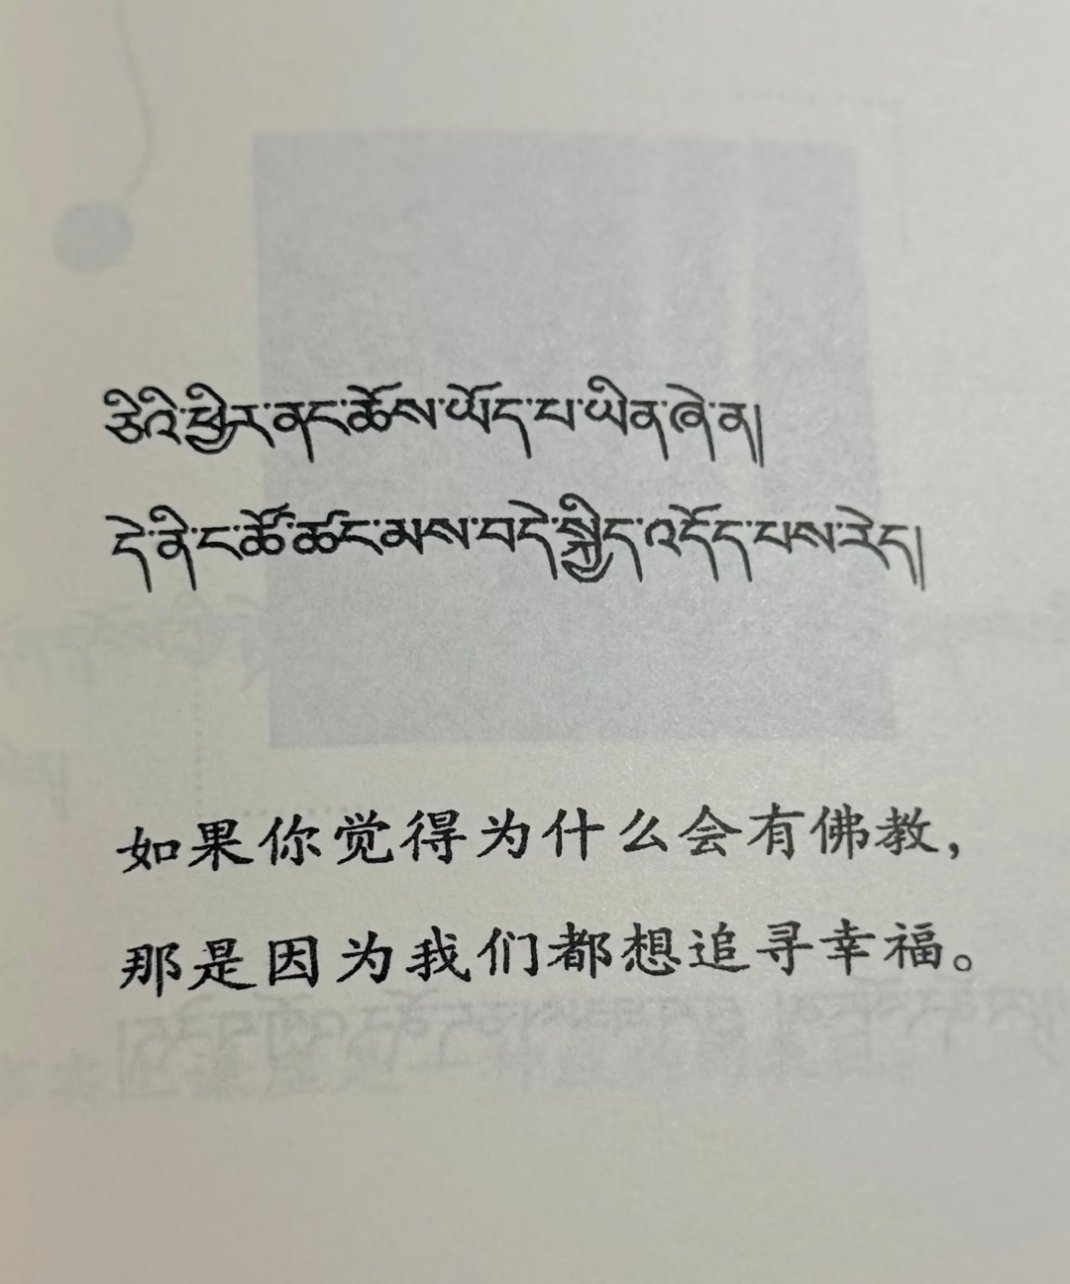 ཅིའི་ཕྱིར་ནང་ཆོས་ཡོད་པ་ཡིན་ཞེ་ན།
དེ་ནི་ང་ཚོ་ཚང་མས་བདེ་སྐྱིད་འདོད་པས་རེད།
如果你觉得为什么会有佛教,
那是因为我们都想追寻幸福。